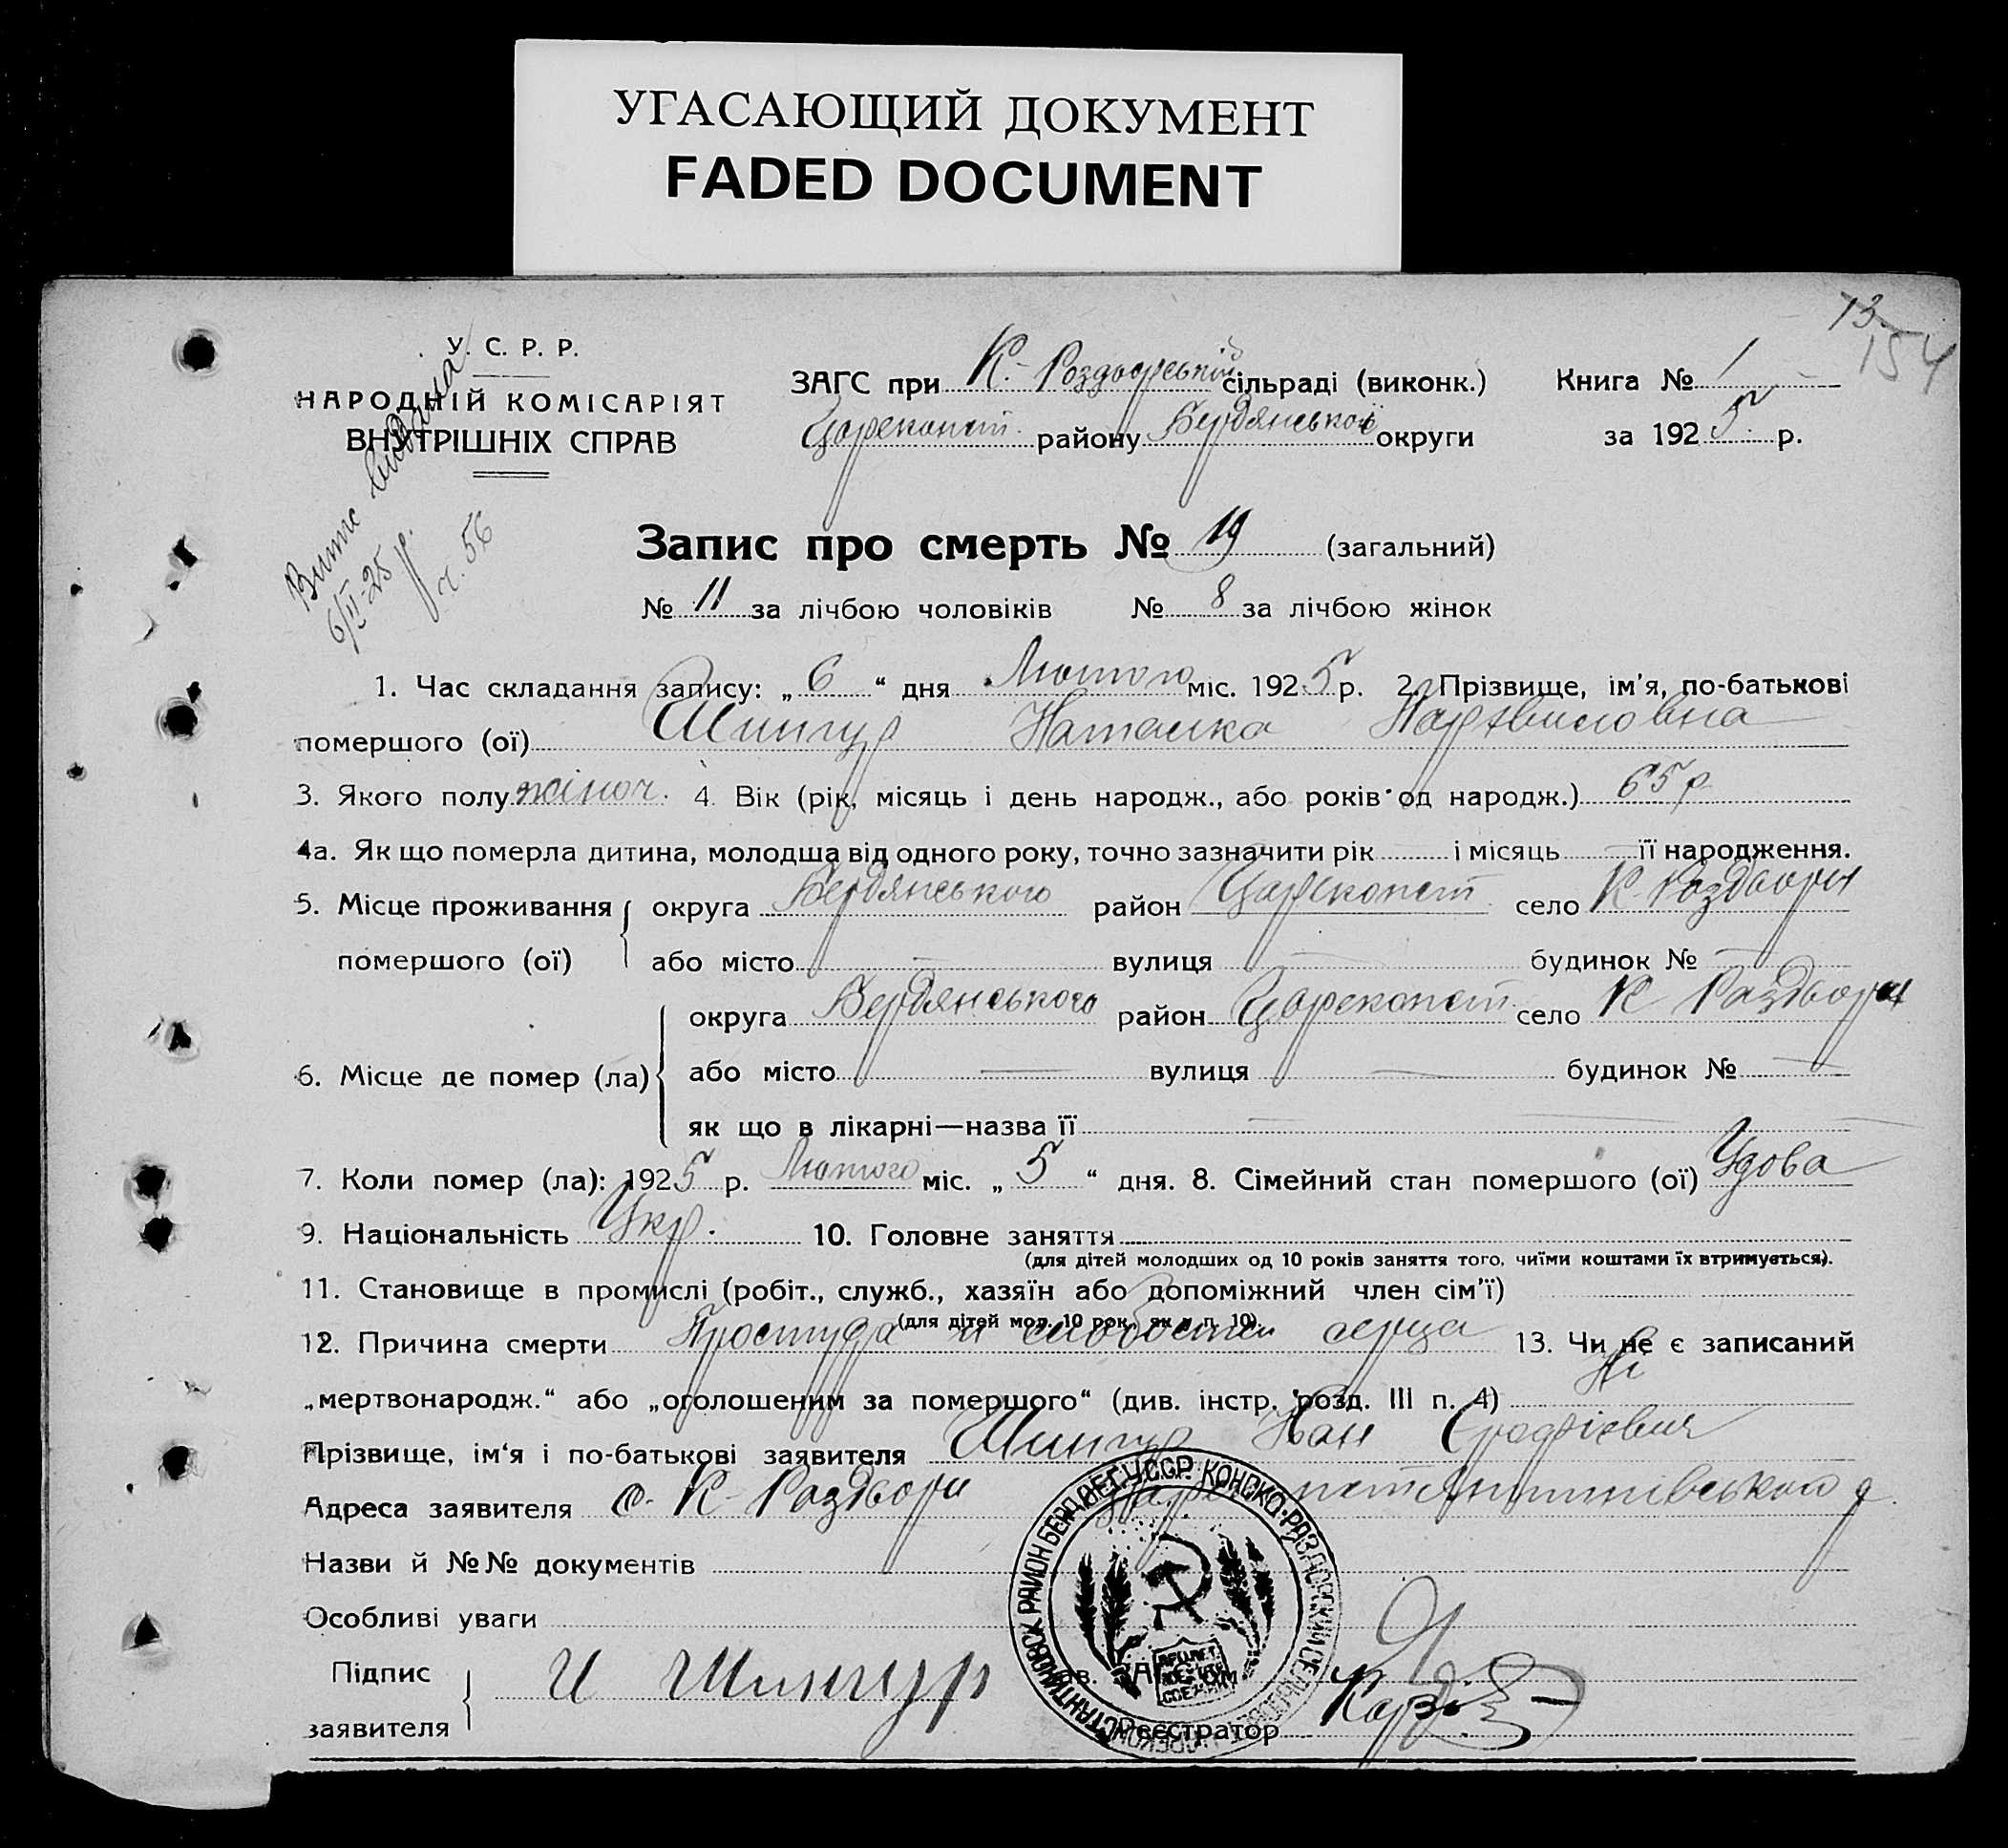 УГАСАЮЩИЙ ДОКУМЕНТ
FADED DOCUMENT
13
154
У. С. Р. Р.
НАРОДНІЙ КОМІСАРІЯТ
ВНУТРІШНІХ СПРАВ
Витяг видана
6/II-25 р.
ч. 56
ЗАГС при К.-Роздорській сільраді (виконк.) Книга № 1
Цареконст. району Бердянської округи за 1925 р.
Запис про смерть № 19 (загальний)
№ 11 за лічбою чоловіків № 8 за лічбою жінок
1. Час складання запису: „6“ дня Лютого міс. 1925 р. 2. Прізвище, ім'я, по-батькові
помершого (ої) Шингур Наталка
3. Якого полу жіноч. 4. Вік (рік, місяць і день народж., або років од народж.) 65 р
4а. Як що померла дитина, молодша від одного року, точно зазначити рік і місяць її народження.
5. Місце проживання округа Бердянського район Цареконст. село К-Роздори
помершого (ої) або місто — вулиця — будинок № —
6. Місце де помер (ла) округа Бердянського район Цареконст. село К Роздори
або місто — вулиця — будинок № —
як що в лікарні—назва її —
7. Коли помер (ла): 1925 р. Лютого міс. „5“ дня. 8. Сімейний стан помершого (ої) Удова
9. Національність Укр. 10. Головне заняття
(для дітей молодших од 10 років заняття того, чиїми коштами їх втримується).
11. Становище в промислі (робіт., служб., хазяїн або допоміжний член сім'ї)
(для дітей мол. 10 рок. як в п. 10).
12. Причина смерти Простуда и серца 13. Чи не є записаний
„мертвонародж.“ або „оголошеним за помершого“ (див. інстр. розд. III п. 4) Ні
Прізвище, ім'я і по-батькові заявителя Шингур Іван
Адреса заявителя с. К-Роздори
Назви й №№ документів
Особливі уваги
Підпис заявителя И Шингур
Зав. ЗАГС'ом
Реєстратор